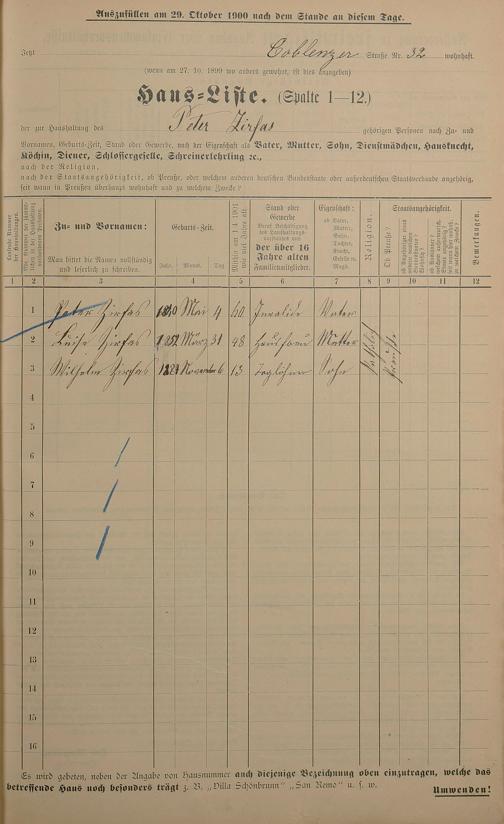 Auszufüllen am 29. Oktober 1900 nach dem Stande an diesem Tage.
Jetzt Coblenzer Straße Nr. 32 wohnhaft.
(wenn am 27. 10. 1899 wo anders gewohnt, ist dies anzugeben)
Haus-Liste. (Spalte 1—12.)
der zur Haushaltung des Peter Zirfas gehörigen Personen nach Zu- und
Vornamen, Geburts-Zeit, Stand oder Gewerbe, nach der Eigenschaft als Vater, Mutter, Sohn, Dienstmädchen, Hausknecht,
Köchin, Diener, Schlossergeselle, Schreinerlehrling ec.,
nach der Religion,
nach der Staatsangehörigkeit, ob Preuße, oder welchem anderen deutschen Bundesstaate oder außerdeutschen Staatsverbande angehörig,
seit wann in Preußen überhaupt wohnhaft und zu welchem Zwecke?
Zu- und Vornamen:
Man bittet die Namen vollständig
und leserlich zu schreiben.
Geburts-Zeit.
Jahr. Monat. Tag
Mithin am 1.4.1901
wie viel Jahre alt
Stand oder
Gewerbe
der über 16
Jahre alten
Familienmitglieder.
Eigenschaft:
ob Vater,
Mutter,
Sohn,
Tochter,
Knecht,
Geselle,
Magd.
Religion.
Staatsangehörigkeit.
Ob Preuße?
Bemerkungen.
1 2 3 4 5 6 7 8 9 10 11 12
1 Peter Zirfas 1840 Mai 4 60 Invalide Vater
2 Luise Zirfas 1852 März 31 48 Hausfrau Mutter
3 Wilhelm Zirfas November 6 13 Taglöhner Sohn
4
5
6
7
8
9
10
11
12
13
14
15
16
Es wird gebeten, neben der Angabe von Hausnummer auch diejenige Bezeichnung oben einzutragen, welche das
betreffende Haus noch besonders trägt z. B. „Villa Schönbrunn“ „San Remo“ u. s. w.
Umwenden!